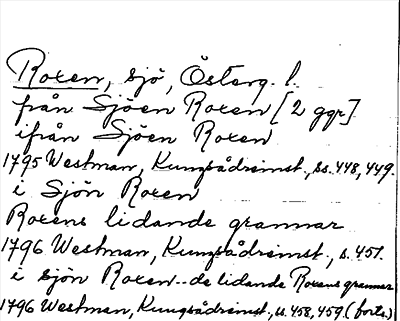 Roxen, sjö, Österg. l.
från Sjöen Roxen [2 ggr]
ifrån Sjöen Roxen
1795 Westman, Kungsådreinst., ss. 448, 449.
i Sjön Roxen
Roxens lidande grannar
1796 Westman, Kungsådreinst., s. 457.
i sjön Roxen - de lidande Roxens grannar
1796 Westman, Kungsådreinst., ss. 458, 459 (forts.)